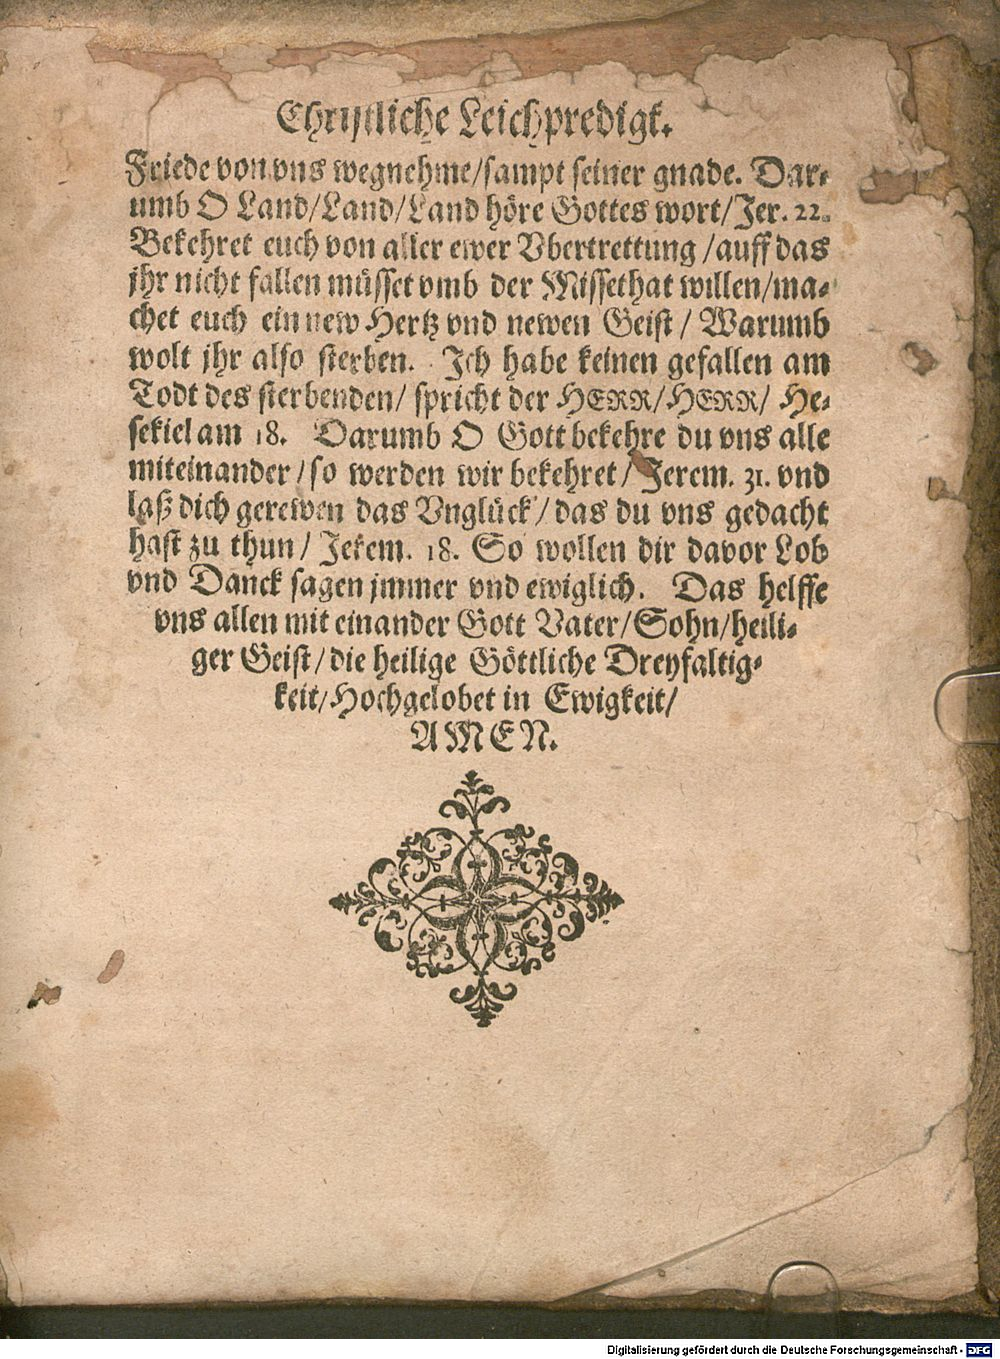 Christliche Leichpredigt.
Friede von vns wegnehme/sampt seiner gnade. Dar-
umb O Land/Land/Land höre Gottes wort/Jer. 22.
Bekehret euch von aller ewer Vbertrettung/auff das
jhr nicht fallen müsset vmb der Missethat willen/ma-
chet euch ein new Hertz vnd newen Geist/ Warumb
wolt jhr also sterben. Ich habe keinen gefallen am
Todt des sterbenden/ spricht der HERR/HERR/ He-
sekiel am 18. Darumb O Gott bekehre du vns alle
miteinander/so werden wir bekehret/Jerem. 31. vnd
laß dich gerewen das Vnglück/das du vns gedacht
hast zu thun/ Jerem. 18. So wollen dir davor Lob
vnd Danck sagen jmmer vnd ewiglich. Das helffe
vns allen mit einander Gott Vater/Sohn/heili-
ger Geist/die heilige Göttliche Dreyfaltig-
keit/Hochgelobet in Ewigkeit/
AMEN.
Digitalisierung gefördert durch die Deutsche Forschungsgemeinschaft - DFG